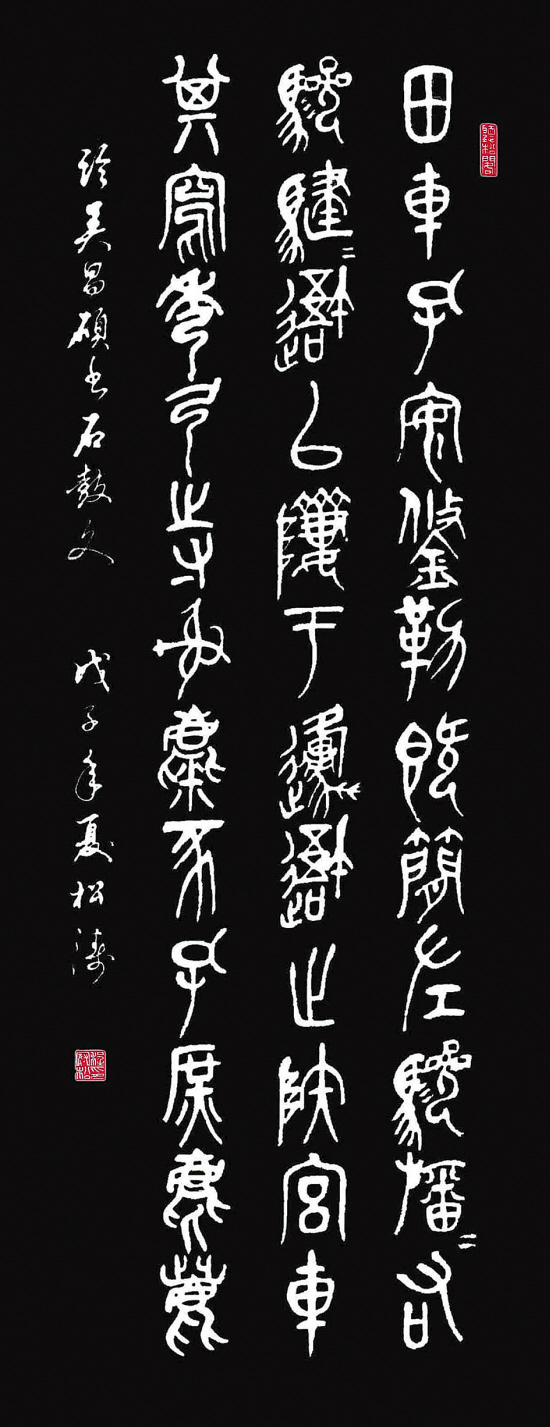 田車孔安鋚勒既簡左驂旛=右
驂騝=吾以隮于邍吾止陝宮車
其寫秀弓寺射麋豕孔庶麀鹿
臨吴昌碩书石鼓文 戊子年夏松濤